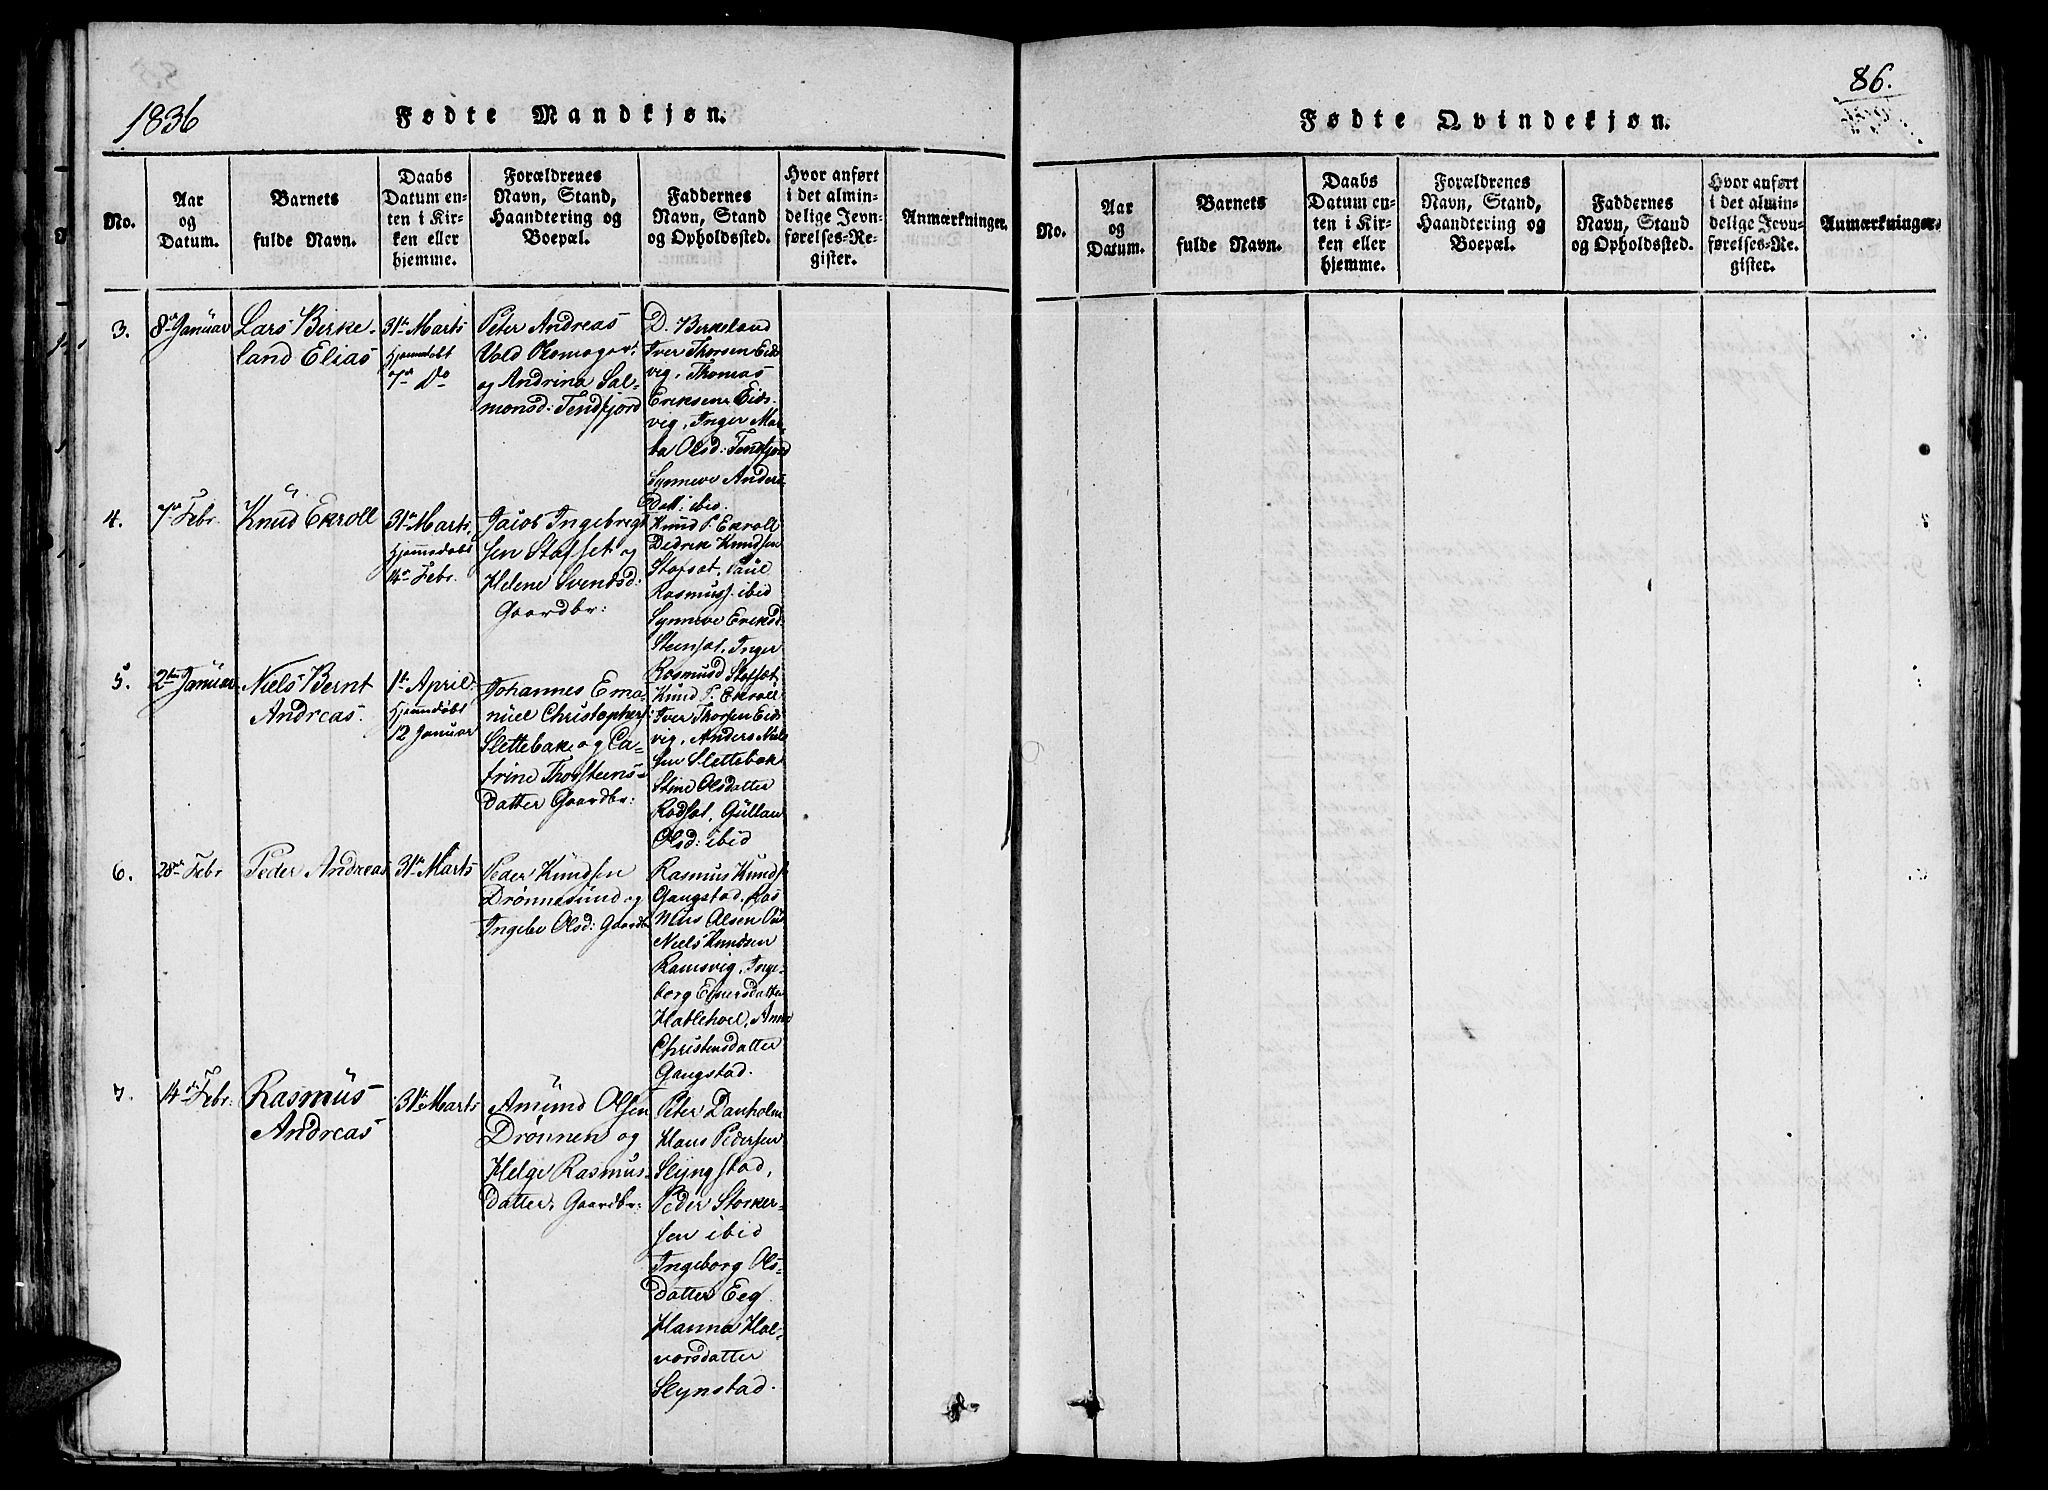 1836
Fødte Mandkjøn.
No.
Aar
og
Datum.
Barnets
fulde Navn.
Daabs
Datum en-
ten i Kir-
ken eller
hjemme.
Forældrenes
Navn, Stand,
Haandtering og
Boepæl.
Faddernes
Navn, Stand
og Opholdssted.
Hvor anført
i det almin-
delige Jevn-
førelses-Re-
gister.
Anmærkninger.
3.
8de Januar
Lars Berke-
land Elias
31te Marts
Hjemdøbt
7de Do
Peter Andreas
Vold
og Andrina Sal-
monsd: Tendfjord
D. Berkeland
Iver Thorsen Eids
vig, Thomas
Eriksen Eids-
vig, Inger Mar-
ta Olsd: Tendfjord
Synneve Anders
Datt: ibid.
4.
7de Febr.
Knud Ekroll
31te Marts
Hjemdøbt
14de Febr.
Jacob Ingebregt
sen Stafset og
Helene Svendsd:
Gaardbr:
Knud P. Ekroll
Didrik Knudsen
Stafset, Paul
Rasmuss. ibid
Synneve Eriksd:
Steensæt, Inger
Rasmusd Stafset
5.
2den Januar
Niels Bernt
Andreas.
1te April
Hjemdøbt
12 Januar
Johannes Ema-
nuel Christophers:
Slettebak og Ca-
trine Thorsteens-
datter Gaardbr:
Knud P. Ekroll
Iver Thorsen Eids
vig, Anders Niel
sen Slettebak
Stine Olsdatter
Rodsæt, Gullau
Olsd: ibid
6.
28de Febr
Peder Andreas
31te Marts
Peder Knudsen
Drønnesund og
Ingebr Olsd: Gaardb
Rasmus Knuds
Gangstad, Ras
mus Olsen
Niels Knudsen
Ramsvig, Inge-
borg Einersdatter
Hatlehoel, Anne
Christensdatter
Gangstad.
7.
14de Febr:
Rasmus
Andreas
31te Marts
Amund Olsen
Drønnen og
Helge Rasmus-
datter, Gaardbr:
Peter Danholm
Hans Pedersen
Slyngstad,
Peder Storker-
sen ibid
Ingeborg Ols-
datter Eeg
Hanna Hal-
vorsdatter
Slynstad.
86.
Fødte Qvindekjøn.
No.
Aar
og
Datum.
Barnets
fulde Navn.
Daabs
Datum en-
ten i Kir-
ken eller
hjemme.
Forældrenes
Navn, Stand,
Haandtering og
Boepæl.
Faddernes
Navn, Stand
og Opholdssted.
Hvor anført
i det almin-
delige Jevn-
førelses-Re-
gister.
Anmærkninger.